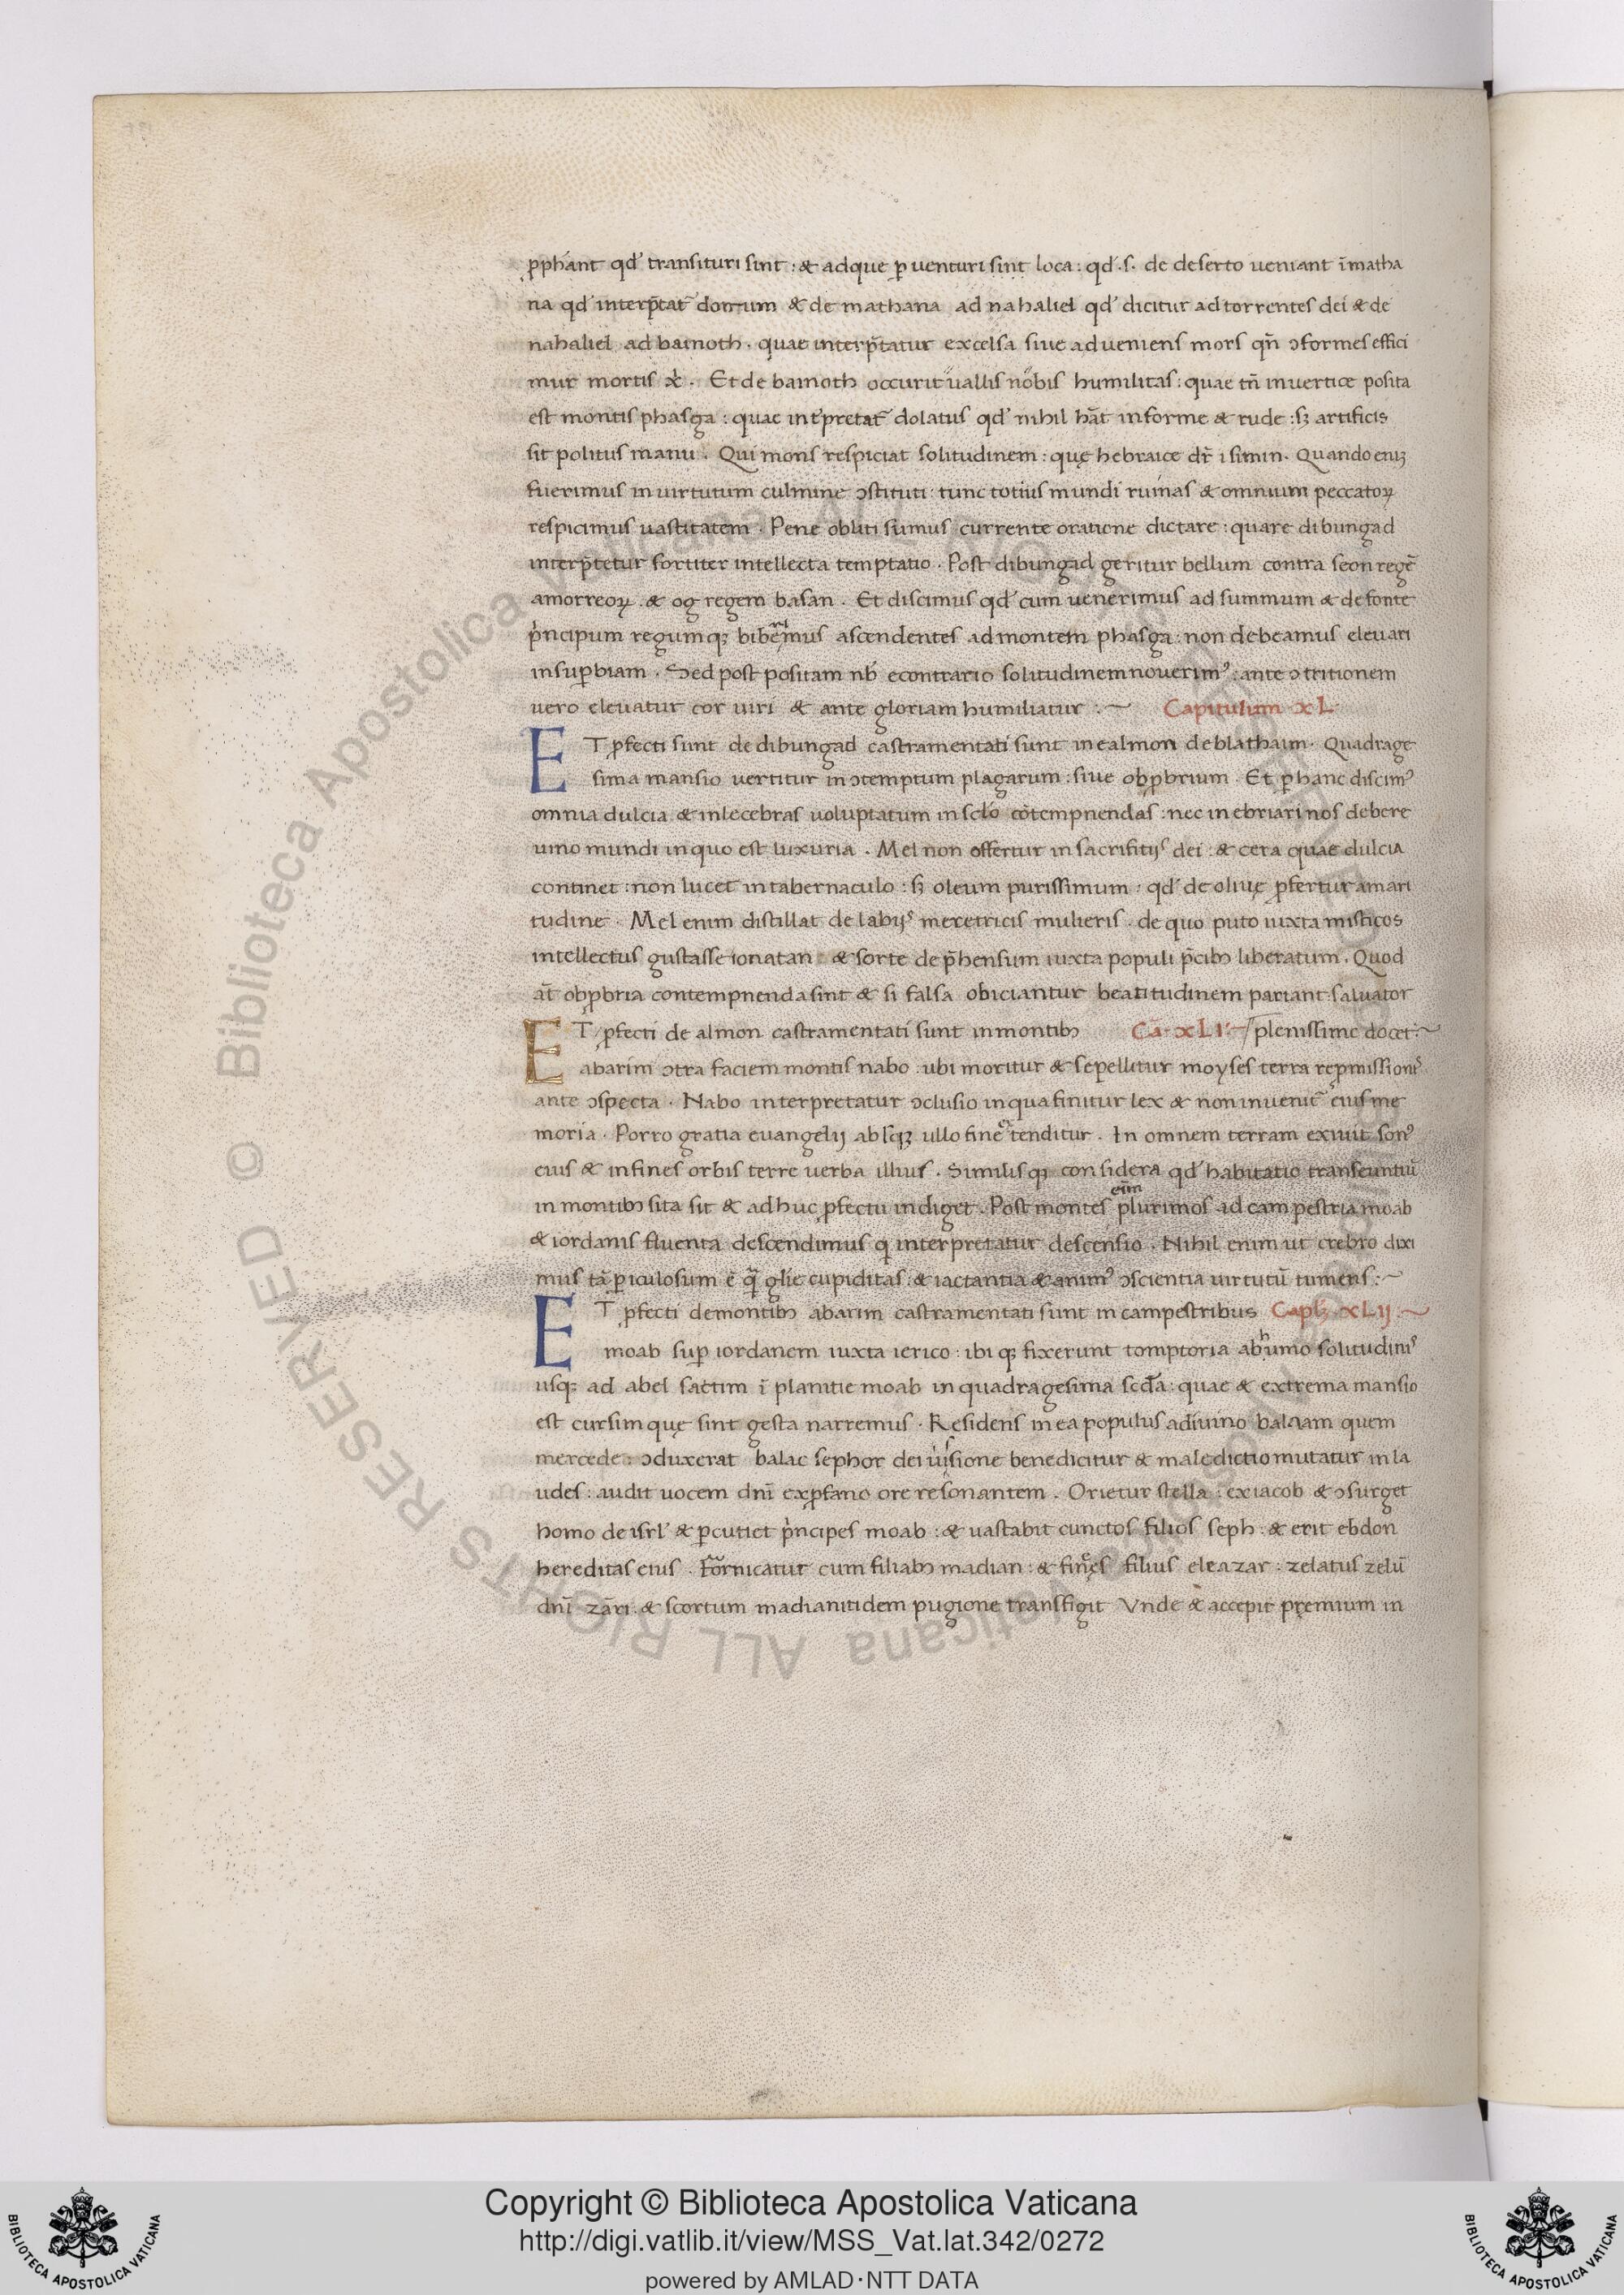 ꝓphant qd' transituri sint : & adque ꝑ venturi sint loca : qd' .s. de deserto veniant ī matha
na qd' interp̄tat̄ donum & de mathana ad nahaliel qd' dicitur ad torrentes dei & de
nahaliel ad bamoth . quae interp̄tatur excelsa sive adveniens mors qñ ↄformes effici
mur mortis x̄ . Et de bamoth occurit vallis nobis humilitas : quae tñ in vertice posita
est montis phasga : quae int̓pretat̄ dolatus qd' nihil hāt informe & rude : sꝫ artificis
sit politus manu . Qui mons respiciat solitudinem : quę hebraice dr̄ isimin . Quando eniꝫ
fuerimus in virtutum culmine ↄstituti : tunc totius mundi ruinas & omnium peccatoꝝ
respicimus vastitatem . Pene obliti sumus currente oratione dictare : quare dibungad
interp̄tetur fortiter intellecta temptatio . Post dibungad geritur bellum contra seon regē
amorreoꝝ . & og regem basan . Et discimus qd' cum venerimus ad summum & de fonte
pͥncipum regumqꝫ biberimus ascendentes ad montem phasga : non debeamus elevari
in suꝑbiam . Sed post positam nb̄ econtrario solitudinem noverimꝰ : ante ↄtritionem
vero elevatur cor viri & ante gloriam humiliatur :~ Capitulum xL
ET ꝓfecti sunt de dibungad castramentati sunt in ealmon deblathaim . Quadrage
sima mansio vertitur in ↄtemptum plagarum : sive obꝓbrium . Et ꝑ hanc discimꝰ
omnia dulcia & inlecebras voluptatum in sclo cōtempnendas : nec inebriari nos debere
vino mundi in quo est luxuria . Mel non offertur in sacrifitijs dei : & cera quae dulcia
continet : non lucet in tabernaculo : sꝫ oleum purissimum : qd' de olivę ꝓfertur amari
tudine . Mel enim distillat de labijs meretricis mulieris . de quo puto iuxta misticos
intellectus gustasse ionatan & sorte dep̄hensum iuxta populi p̄cibꝫ liberatum . Quod
at̄ obꝓbria contempnenda sint & si falsa obiciantur beatitudinem pariant salvator
ET ꝓfecti de almon castramentati sunt in montibꝫ Cā xLI :~ / plenissime docet :~
abarim ↄtra faciem montis nabo . ubi moritur & sepellitur moyses terra reꝓmissionis
ante ↄspecta . Nabo interpretatur ↄclusio in qua finitur lex & non invenit̄ eius me
moria . Porro gratia evangelij absqꝫ ullo fine tenditur . In omnem terram exivit sonꝰ
eius & in fines orbis terre verba illius . Similisqꝫ considera qd' habitatio transeuntiū
in montibꝫ sita sit & adhuc ꝓfectu indiget . Post montes eīm plurimos ad campestria moab
& iordanis fluenta descendimus q̄ interpretatur descensio . Nihil enim ut crebro dixi
mus tā ꝑiculosum ē q̄ glīe cupiditas & iactantia & animꝰ ↄscientia virtutū tumens :~
ET ꝓfecti de montibꝫ abarim castramentati sunt in campestribus Caplꝫ xLij :~
moab suꝑ iordanem iuxta ierico : ibi qꝫ fixerunt tomptoria ab humo solitudinis
usqꝫ ad abel sattim ī planitie moab in quadragesima scd̄a : quae & extrema mansio
est cursim quę sint gesta narremus . Residens in ea populus a divino balaam quem
mercede : ↄduxerat balac sephor dei visione benedicitur & maledictio mutatur in la
udes : audit vocem dnī ex ꝓfano ore resonantem . Orietur stella : ex iacob & ↄsurget
homo de isrl' & ꝑcutiet pͥncipes moab : & vastabit cunctos filios seph : & erit ebdon
hereditas eius . Fornicatur cum filiabꝫ madian : & finęes filius eleazar : zelatus zelū
dnī zāri . & scortum madianitidem pugione transfigit Vnde & accepit pręmium in
Copyright © Biblioteca Apostolica Vaticana
http://digi.vatlib.it/view/MSS_Vat.lat.342/0272
powered by AMLAD·NTT DATA